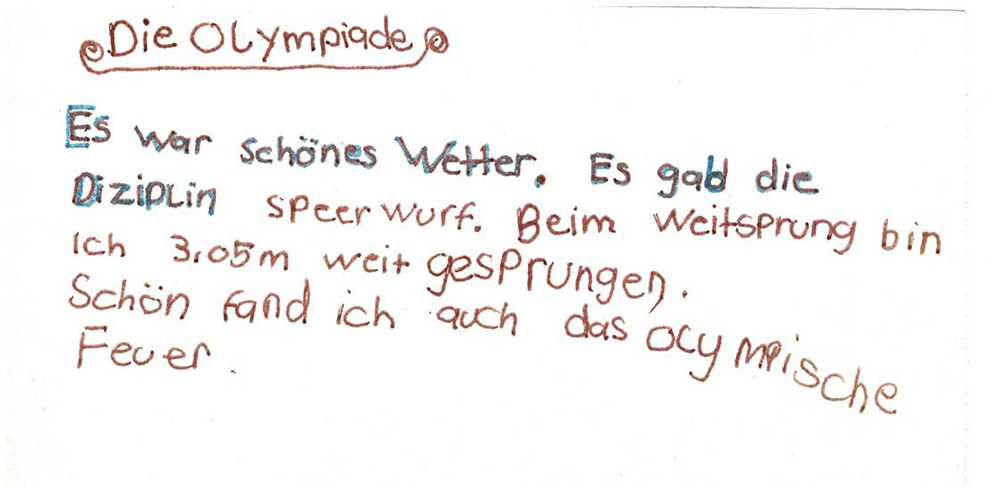 Die Olympiade
Es war schönes Wetter. Es gab die
Diziplin speerwurf. Beim Weitsprung bin
Ich 3,05m weit gesprungen.
Schön fand ich auch das olympische
Feuer.